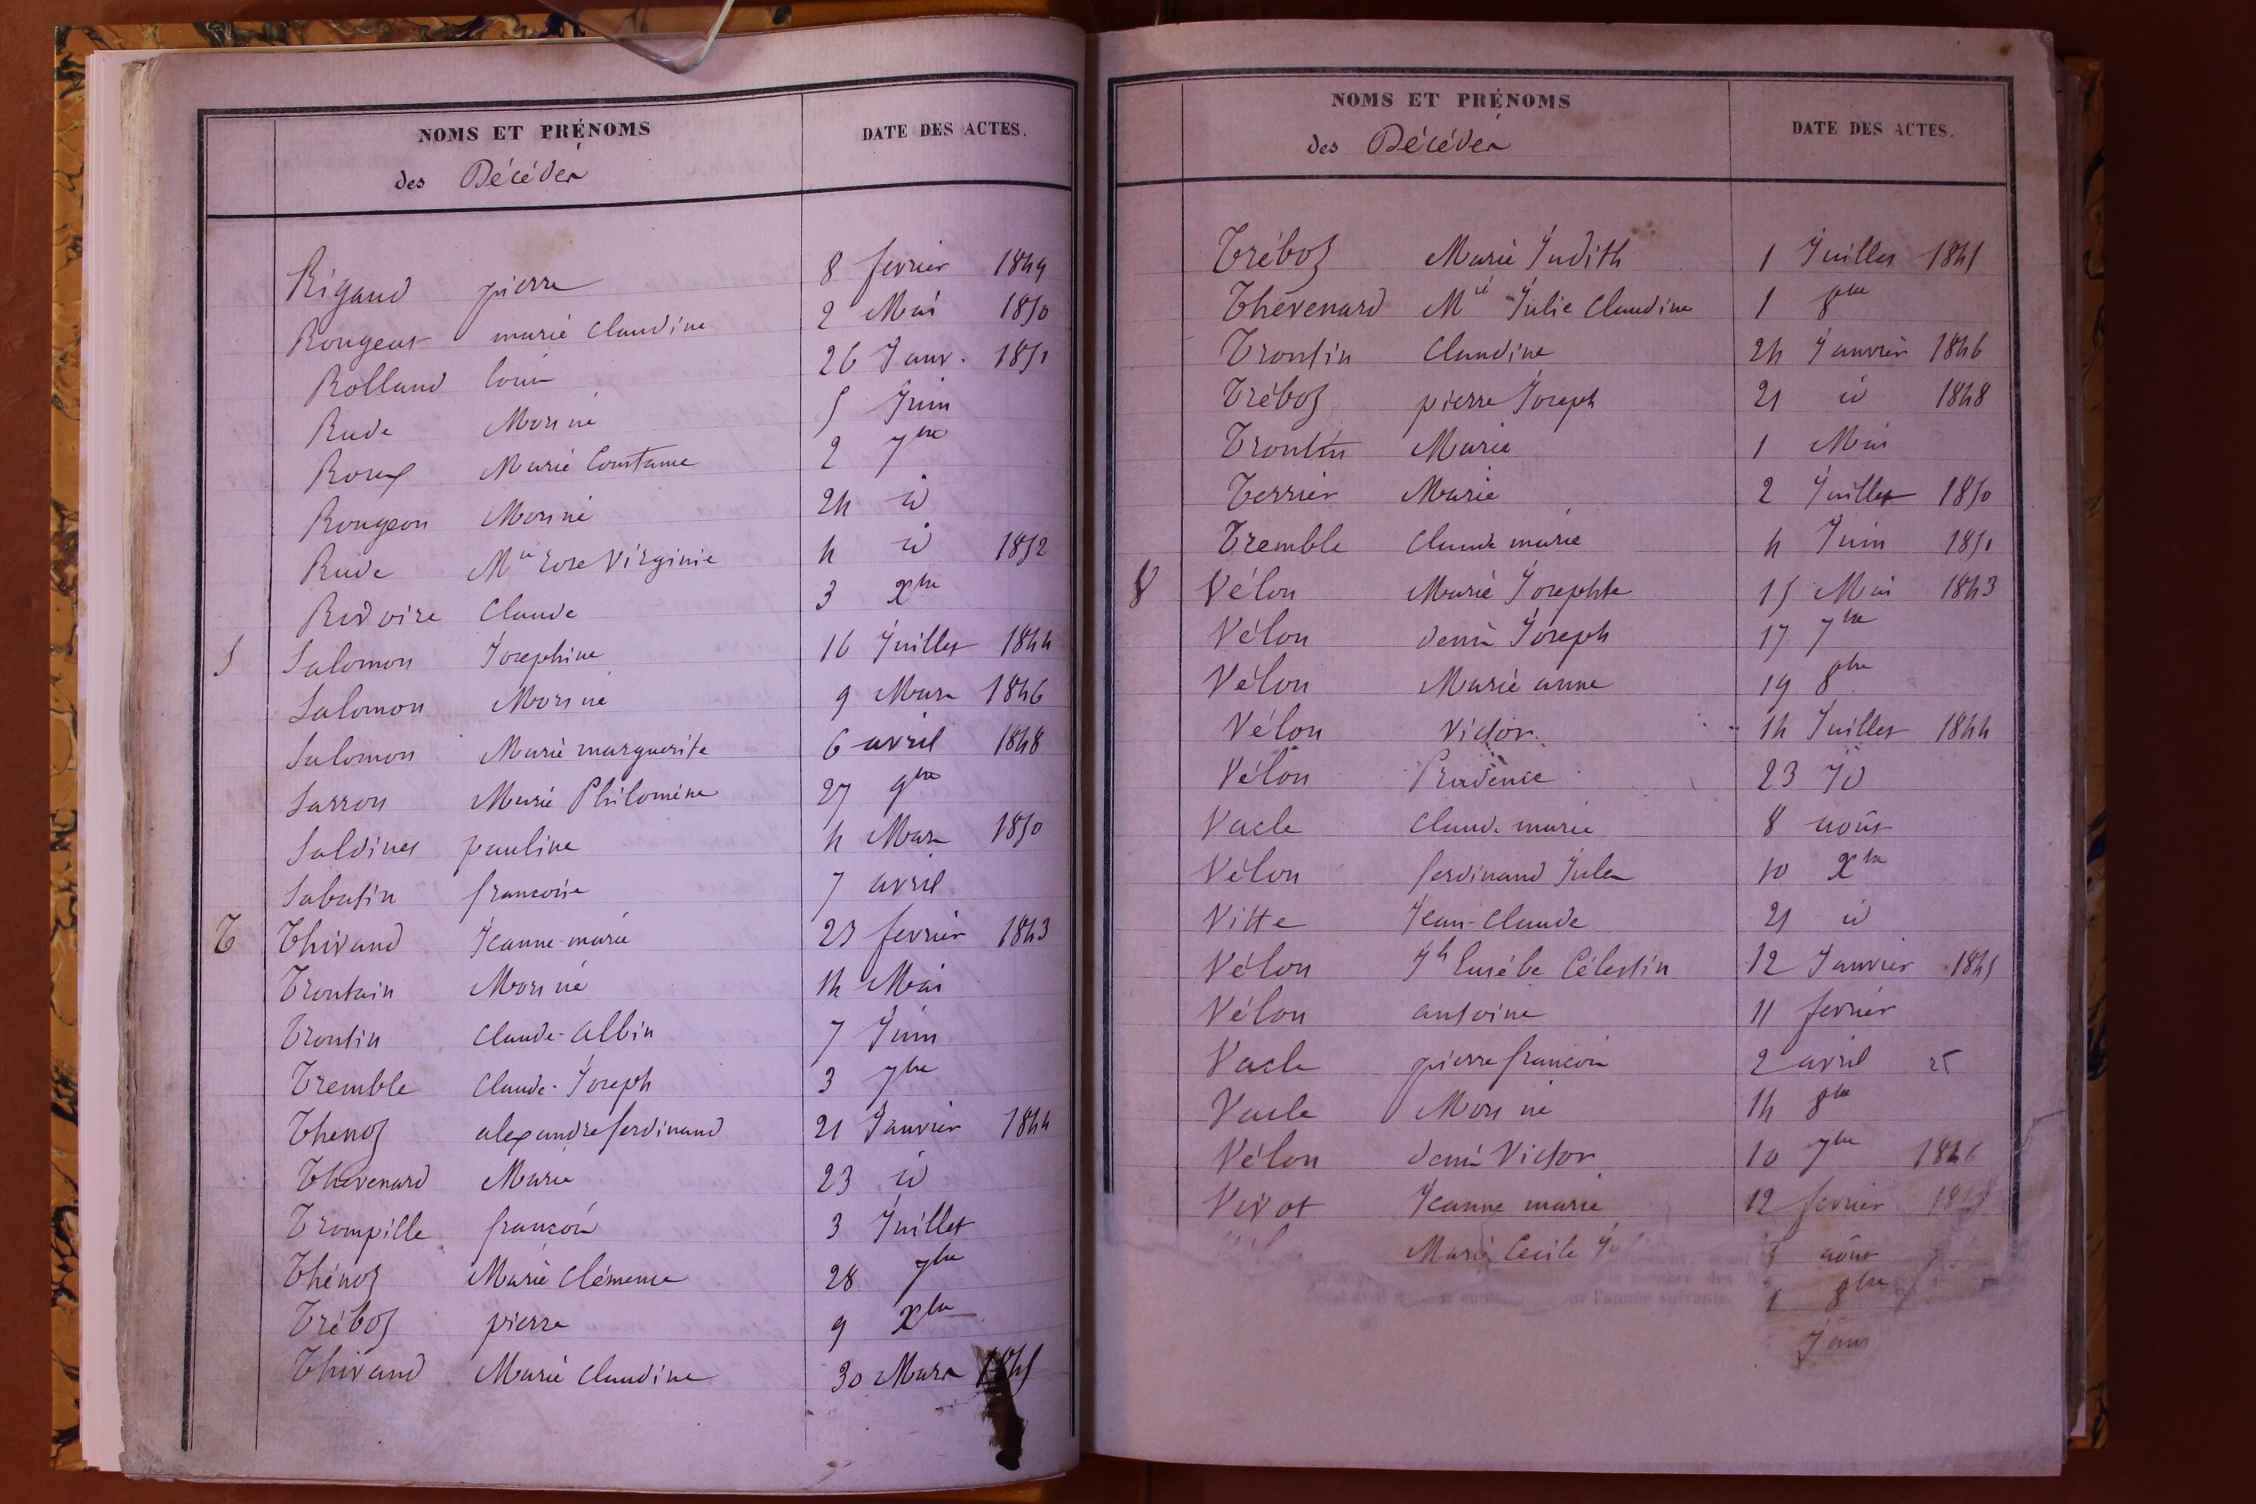 NOMS ET PRÉNOMS
DATE DES ACTES.
des Décédés
Rigaud pierre 8 fevrier 1849
Rougeat marie claudine 2 Mai 1850
Rolland louis 26 Janv. 1851
Rude Mort né 5 Juin
Roux Marie Constance 2 7bre
Rougeon Mort né 24 id
Rude Mie rose Virginie 4 id 1852
Revoire Claude 3 Xbre
S Salomon Josephine 16 Juillet 1844
Salomon Mort né 9 Mars 1846
Salomon Marie marguerite 6 avril 1848
Sarron Marie Philomène 27 9bre
Saldines pauline 4 Mars 1850
Sabatin francoise 7 avril
T Thivand Jeanne-marie 23 fevrier 1843
Trontain Mort né 14 Mai
Trontin Claude-albin 7 Juin
Tremble Claude-Joseph 3 7bre
Thenoz alexandre ferdinand 21 Janvier 1844
Thevenard Marie 23 id
Trompille francois 3 Juillet
Thénoz Marie Clémence 28 7bre
Tréboz pierre 9 Xbre
Thivand Marie Claudine 30 Mars 1845
NOMS ET PRÉNOMS
DATE DES ACTES.
des Décédés
Tréboz Marie Judith 1 Juillet 1845
Thévenard Mie Julie Claudine 1 8bre
Trontin Claudine 24 Janvier 1846
Tréboz pierre Joseph 21 id 1848
Trontin Marie 1 Mai
Terrier Marie 2 Juillet 1850
Tremble Claude marie 4 Juin 1851
V Vélon Marie Josephte 15 Mai 1843
Vélon denis Joseph 17 7bre
Vélon Marie anne 19 8bre
Vélon Victor 14 Juillet 1844
Vélon Prudence 23 Jd
Vacle Claude marie 8 août
Vélon ferdinand Jules 10 Xbre
Vitte Jean-Claude 21 id
Vélon Jh Eusébe Célestin 12 Janvier 1845
Vélon antoine 11 fevrier
Vacle pierre francois 2 avril
Vacle Mort né 14 8bre
Vélon denis Victor 10 7bre 1846
Vivot Jeanne marie 12 fevrier
Marie Cecile août
1 8bre
Janv